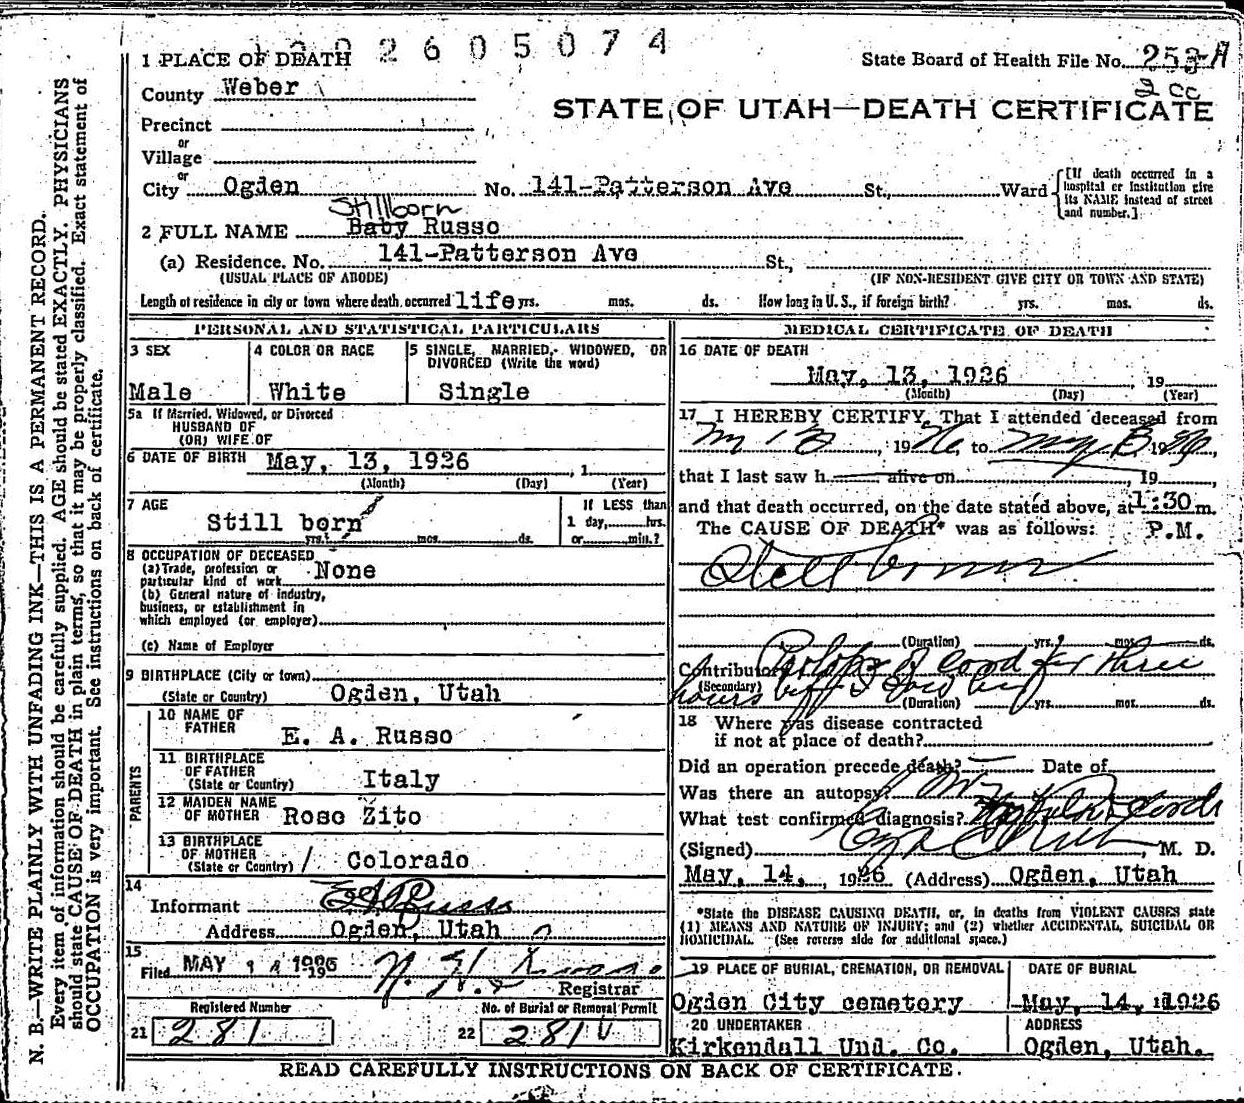 2605074
1 PLACE OF DEATH
State Board of Health File No. 253-A
2 cc
County Weber
STATE OF UTAH—DEATH CERTIFICATE
Precinct
or
Village
or
City Ogden No. 141-Patterson Ave St., Ward
[If death occurred in a hospital or institution give its NAME instead of street and number.]
Stillborn
2 FULL NAME Baby Russo
(a) Residence. No. 141-Patterson Ave St.,
(USUAL PLACE OF ABODE) (IF NON-RESIDENT GIVE CITY OR TOWN AND STATE)
Length of residence in city or town where death occurred life yrs. mos. ds. How long in U. S., if foreign birth? yrs. mos. ds.
PERSONAL AND STATISTICAL PARTICULARS
3 SEX
Male
4 COLOR OR RACE
White
5 SINGLE, MARRIED, WIDOWED, OR
DIVORCED (Write the word)
Single
5a If Married, Widowed, or Divorced
HUSBAND OF
(OR) WIFE OF
6 DATE OF BIRTH May, 13, 1926 , 1
(Month) (Day) (Year)
7 AGE
Still born
yrs. mos. ds.
If LESS than
1 day, hrs.
or min.?
8 OCCUPATION OF DECEASED
(a) Trade, profession or
particular kind of work None
(b) General nature of industry,
business, or establishment in
which employed (or employer)
(c) Name of Employer
9 BIRTHPLACE (City or town)
(State or Country) Ogden, Utah
PARENTS
10 NAME OF
FATHER E. A. Russo
11 BIRTHPLACE
OF FATHER
(State or Country) Italy
12 MAIDEN NAME
OF MOTHER Rose Zito
13 BIRTHPLACE
OF MOTHER
(State or Country) Colorado
14
Informant E A Russo
Address Ogden, Utah
15
Filed MAY 1926
Registrar
Registered Number
21 281
No. of Burial or Removal Permit
22 281
MEDICAL CERTIFICATE OF DEATH
16 DATE OF DEATH
May, 13, 1926 , 19
(Month) (Day) (Year)
17 I HEREBY CERTIFY, That I attended deceased from
, 1926, to May 13 1926,
that I last saw h alive on , 19 ,
and that death occurred, on the date stated above, at 1:30 m.
The CAUSE OF DEATH* was as follows: P.M.
Stillborn
(Duration) yrs. mos. ds.
Contributory Prolapse of cord for three
(Secondary) hours
(Duration) yrs. mos. ds.
18 Where was disease contracted
if not at place of death?
Did an operation precede death? Date of
Was there an autopsy? no
What test confirmed diagnosis?
(Signed) , M. D.
May, 14, , 1926 (Address) Ogden, Utah
*State the DISEASE CAUSING DEATH, or, in deaths from VIOLENT CAUSES state
(1) MEANS AND NATURE OF INJURY; and (2) whether ACCIDENTAL, SUICIDAL OR
HOMICIDAL. (See reverse side for additional space.)
19 PLACE OF BURIAL, CREMATION, OR REMOVAL
Ogden City cemetery
DATE OF BURIAL
May, 14, 1926
20 UNDERTAKER
Kirkendall Und. Co.
ADDRESS
Ogden, Utah.
READ CAREFULLY INSTRUCTIONS ON BACK OF CERTIFICATE.
N. B.—WRITE PLAINLY WITH UNFADING INK—THIS IS A PERMANENT RECORD.
Every item of information should be carefully supplied. AGE should be stated EXACTLY. PHYSICIANS
should state CAUSE OF DEATH in plain terms, so that it may be properly classified. Exact statement of
OCCUPATION is very important. See instructions on back of certificate.